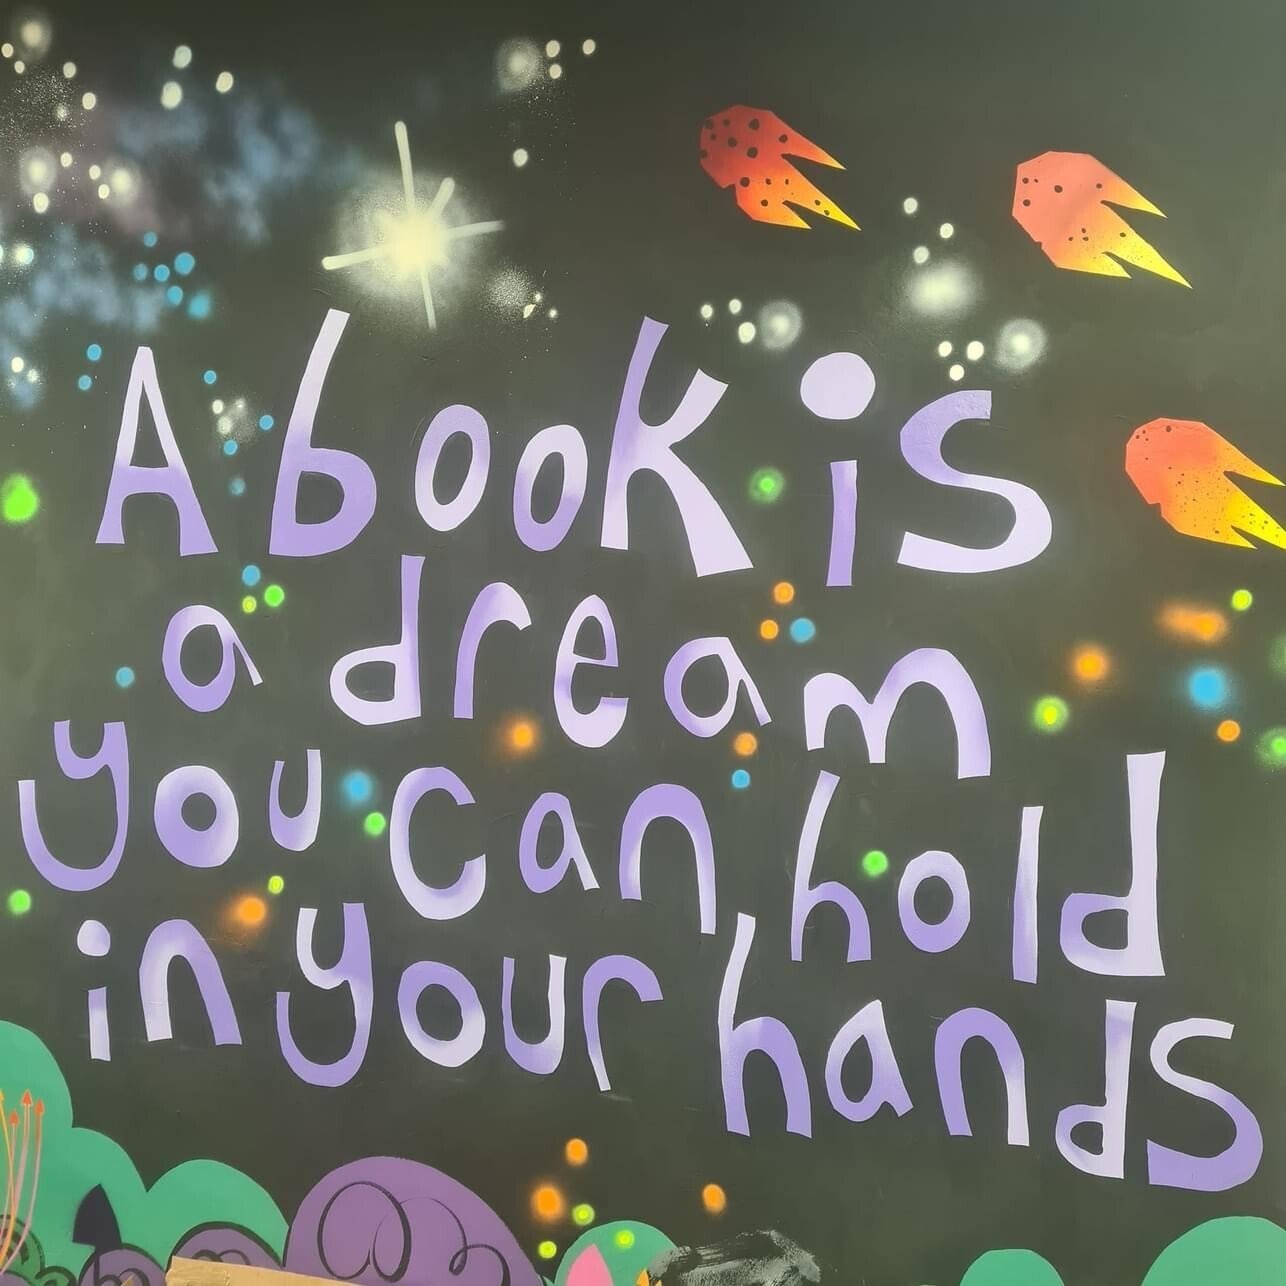 A book is
a dream
you can hold
in your hands